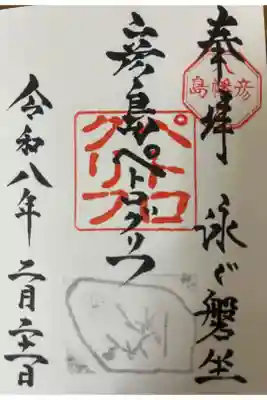 奉拝 泳ぐ磐坐
彦島八幡
彦島ペトログリフ
ペトロ
グリフ
令和八年二月二十一日